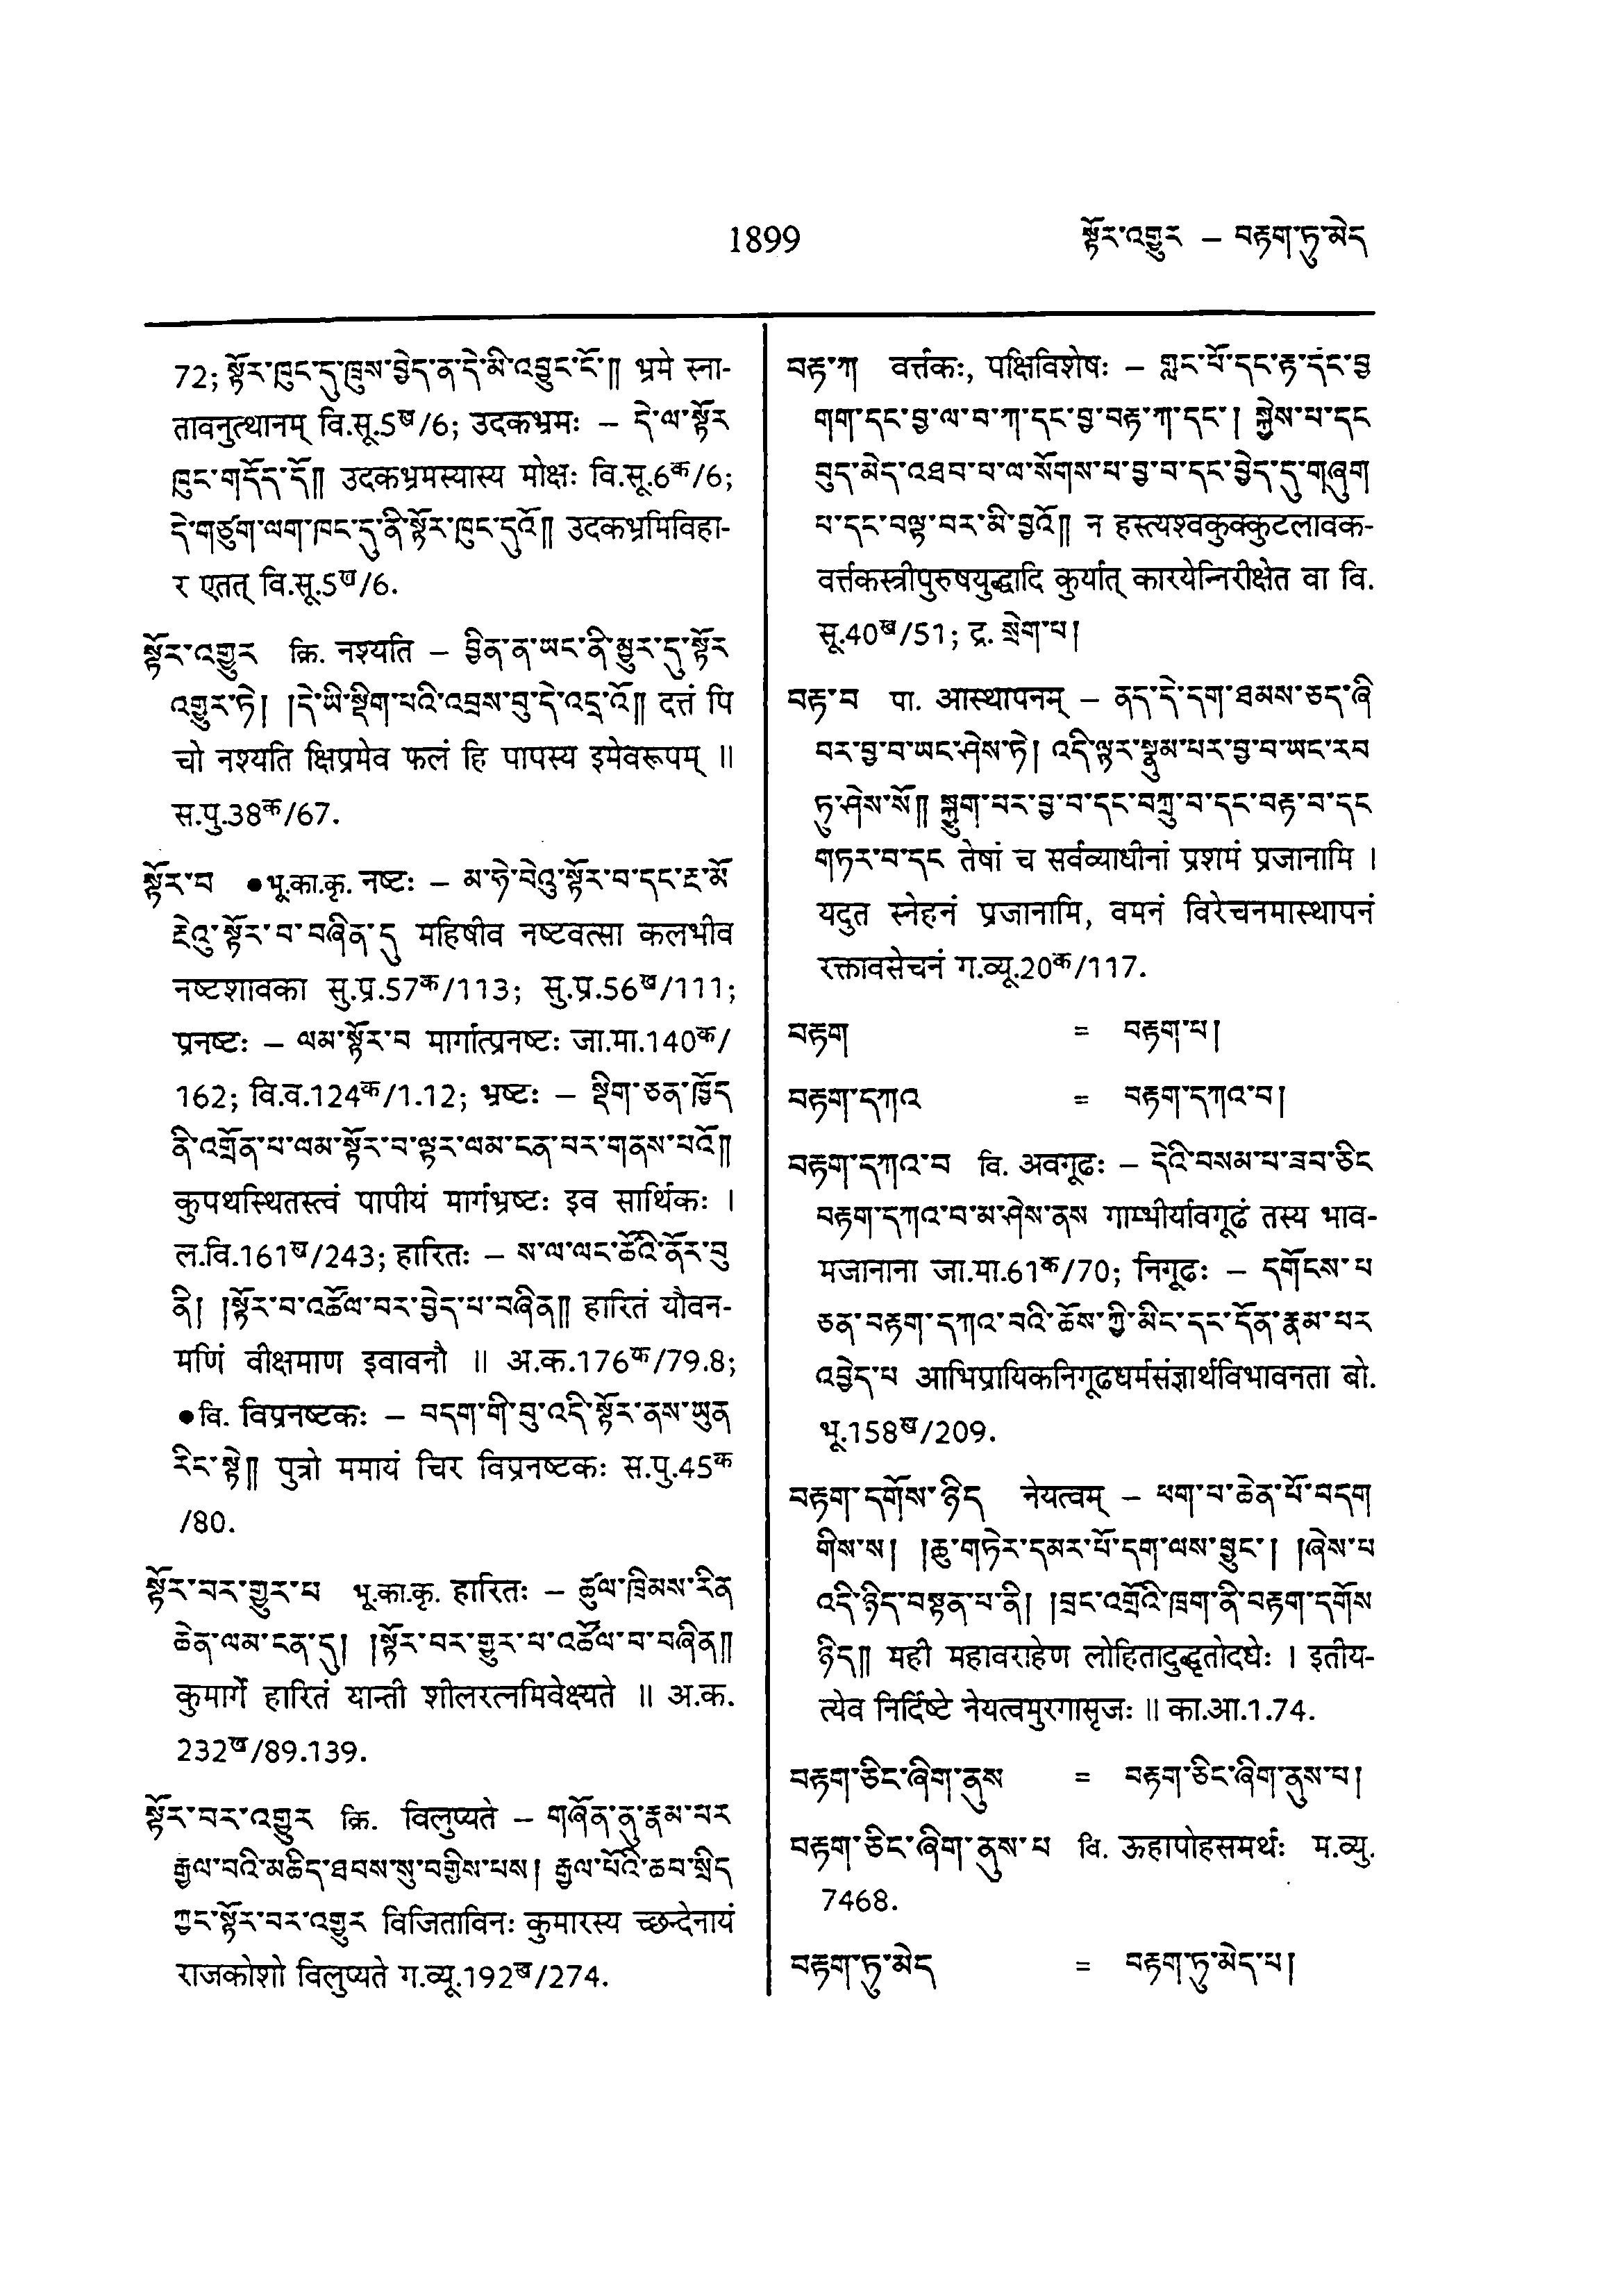 1899
སྟོར་འགྱུར – བརྟག་ཏུ་མེད
72; སྟོར་ཁུང་དུ་ཁྲུས་བྱེད་ན་དེ་མི་འབྱུང་ངོ་༎ भ्रमे स्ना-
तावनुत्थानम् वि.सू.5ख/6; उदकभ्रमः – དེ་ལ་སྟོར
ཁུང་གདོད་དོ༎ उदकभ्रमस्यास्य मोक्षः वि.सू.6क/6;
དེ་གཙུག་ལག་ཁང་དུ་ནི་སྟོར་ཁུང་དུའོ༎ उदकभ्रमिविहा-
र एतत् वि.सू.5ख/6.
སྟོར་འགྱུར क्रि. नश्यति – བྱིན་ན་ཡང་ནི་མྱུར་དུ་སྟོར
འགྱུར་ཏེ། །དེ་ཡི་སྡིག་པའི་འབྲས་བུ་དེ་འདྲ་འོ༎ दत्तं पि
चो नश्यति क्षिप्रमेव फलं हि पापस्य इमेवरूपम् ॥
स.पु.38क/67.
སྟོར་བ ●भू.का.कृ. नष्टः – མ་ཧེ་བེའུ་སྟོར་བ་དང་རྔ་མོ
རྔེའུ་སྟོར་བ་བཞིན་དུ महिषीव नष्टवत्सा कलभीव
नष्टशावका सु.प्र.57क/113; सु.प्र.56ख/111;
प्रनष्टः – ལམ་སྟོར་བ मार्गात्प्रनष्टः जा.मा.140क/
162; वि.व.124क/1.12; भ्रष्टः – སྡིག་ཅན་ཁྱོད
ནི་འགྲོན་པ་ལམ་སྟོར་བ་ལྟར་ལམ་ངན་པར་གནས་པའོ༎
कुपथस्थितस्त्वं पापीयं मार्गभ्रष्टः इव सार्थिकः ।
ल.वि.161ख/243; हारितः – ས་ལ་ལང་ཚོའི་ནོར་བུ
ནི། །སྟོར་བ་འཚོལ་བར་བྱེད་པ་བཞིན༎ हारितं यौवन-
मणिं वीक्षमाण इवावनौ ॥ अ.क.176क/79.8;
●वि. विप्रनष्टकः – བདག་གི་བུ་འདི་སྟོར་ནས་ཡུན
རིང་སྟེ༎ पुत्रो ममायं चिर विप्रनष्टकः स.पु.45क
/80.
སྟོར་བར་གྱུར་པ भू.का.कृ. हारितः – ཚུལ་ཁྲིམས་རིན
ཆེན་ལམ་ངན་དུ། །སྟོར་བར་གྱུར་པ་འཚོལ་བ་བཞིན༎
कुमार्गे हारितं यान्ती शीलरत्नमिवेक्ष्यते ॥ अ.क.
232ख/89.139.
སྟོར་བར་འགྱུར क्रि. विलुप्यते – གཞོན་ནུ་རྣམ་པར
རྒྱལ་བའི་མཆིད་ཐབས་སུ་བགྱིས་པས། རྒྱལ་པོའི་ཆབ་སྲིད
ཀྱང་སྟོར་བར་འགྱུར विजिताविनः कुमारस्य च्छन्देनायं
राजकोशो विलुप्यते ग.व्यू.192ख/274.
བརྟ་ཀ वर्त्तकः, पक्षिविशेषः – གླང་པོ་དང་རྟ་དང་བྱ
གག་དང་བྱ་ལ་བ་ཀ་དང་བྱ་བརྟ་ཀ་དང་། སྐྱེས་པ་དང
བུད་མེད་འཐབ་པ་ལ་སོགས་པ་བྱ་བ་དང་བྱེད་དུ་གཞུག
པ་དང་བལྟ་བར་མི་བྱའོ༎ न हस्त्यश्वकुक्कुटलावक-
वर्त्तकस्त्रीपुरुषयुद्धादि कुर्यात् कारयेन्निरीक्षेत वा वि.
सू.40ख/51; द्र. སྲེག་པ།
བརྟ་བ पा. आस्थापनम् – ནད་དེ་དག་ཐམས་ཅད་ཞི
བར་བྱ་བ་ཡང་ཤེས་ཏེ། འདི་ལྟར་སྣུམ་པར་བྱ་བ་ཡང་རབ
ཏུ་ཤེས་སོ༎ སྐྱུག་པར་བྱ་བ་དང་བཀྲུ་བ་དང་བརྟ་བ་དང
གཏར་བ་དང तेषां च सर्वव्याधीनां प्रशमं प्रजानामि ।
यदुत स्नेहनं प्रजानामि, वमनं विरेचनमास्थापनं
रक्तावसेचनं ग.व्यू.20क/117.
བརྟག = བརྟག་པ།
བརྟག་དཀའ = བརྟག་དཀའ་བ།
བརྟག་དཀའ་བ वि. अवगूढः – དེའི་བསམ་པ་ཟབ་ཅིང
བརྟག་དཀའ་བ་མ་ཤེས་ནས गाम्भीर्यावगूढं तस्य भाव-
मजानाना जा.मा.61क/70; निगूढः – དགོངས་པ
ཅན་བརྟག་དཀའ་བའི་ཆོས་ཀྱི་མིང་དང་དོན་རྣམ་པར
འབྱེད་པ आभिप्रायिकनिगूढधर्मसंज्ञार्थविभावनता बो.
भू.158ख/209.
བརྟག་དགོས་ཉིད नेयत्वम् – ཕག་པ་ཆེན་པོ་བདག
གིས་ས། །ཆུ་གཏེར་དམར་པོ་དག་ལས་བྱུང་། །ཞེས་པ
འདི་ཉིད་བསྟན་པ་ནི། །བྲང་འགྲོའི་ཁྲག་ནི་བརྟག་དགོས
ཉིད༎ मही महावराहेण लोहितादुद्धृतोदधेः । इतीय-
त्येव निर्दिष्टे नेयत्वमुरगासृजः ॥ का.आ.1.74.
བརྟག་ཅིང་ཞིག་ནུས = བརྟག་ཅིང་ཞིག་ནུས་པ།
བརྟག་ཅིང་ཞིག་ནུས་པ वि. ऊहापोहसमर्थः म.व्यु.
7468.
བརྟག་ཏུ་མེད = བརྟག་ཏུ་མེད་པ།